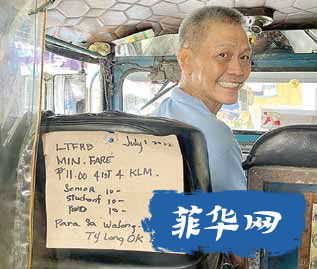 July 1 2022
LTFRB
MIN. FARE
₱11.00 4 1ST 4 KLM.
Senior 10-
Student 10-
PWD 10-
Para Sa Walong
Ty Long OK
菲华网